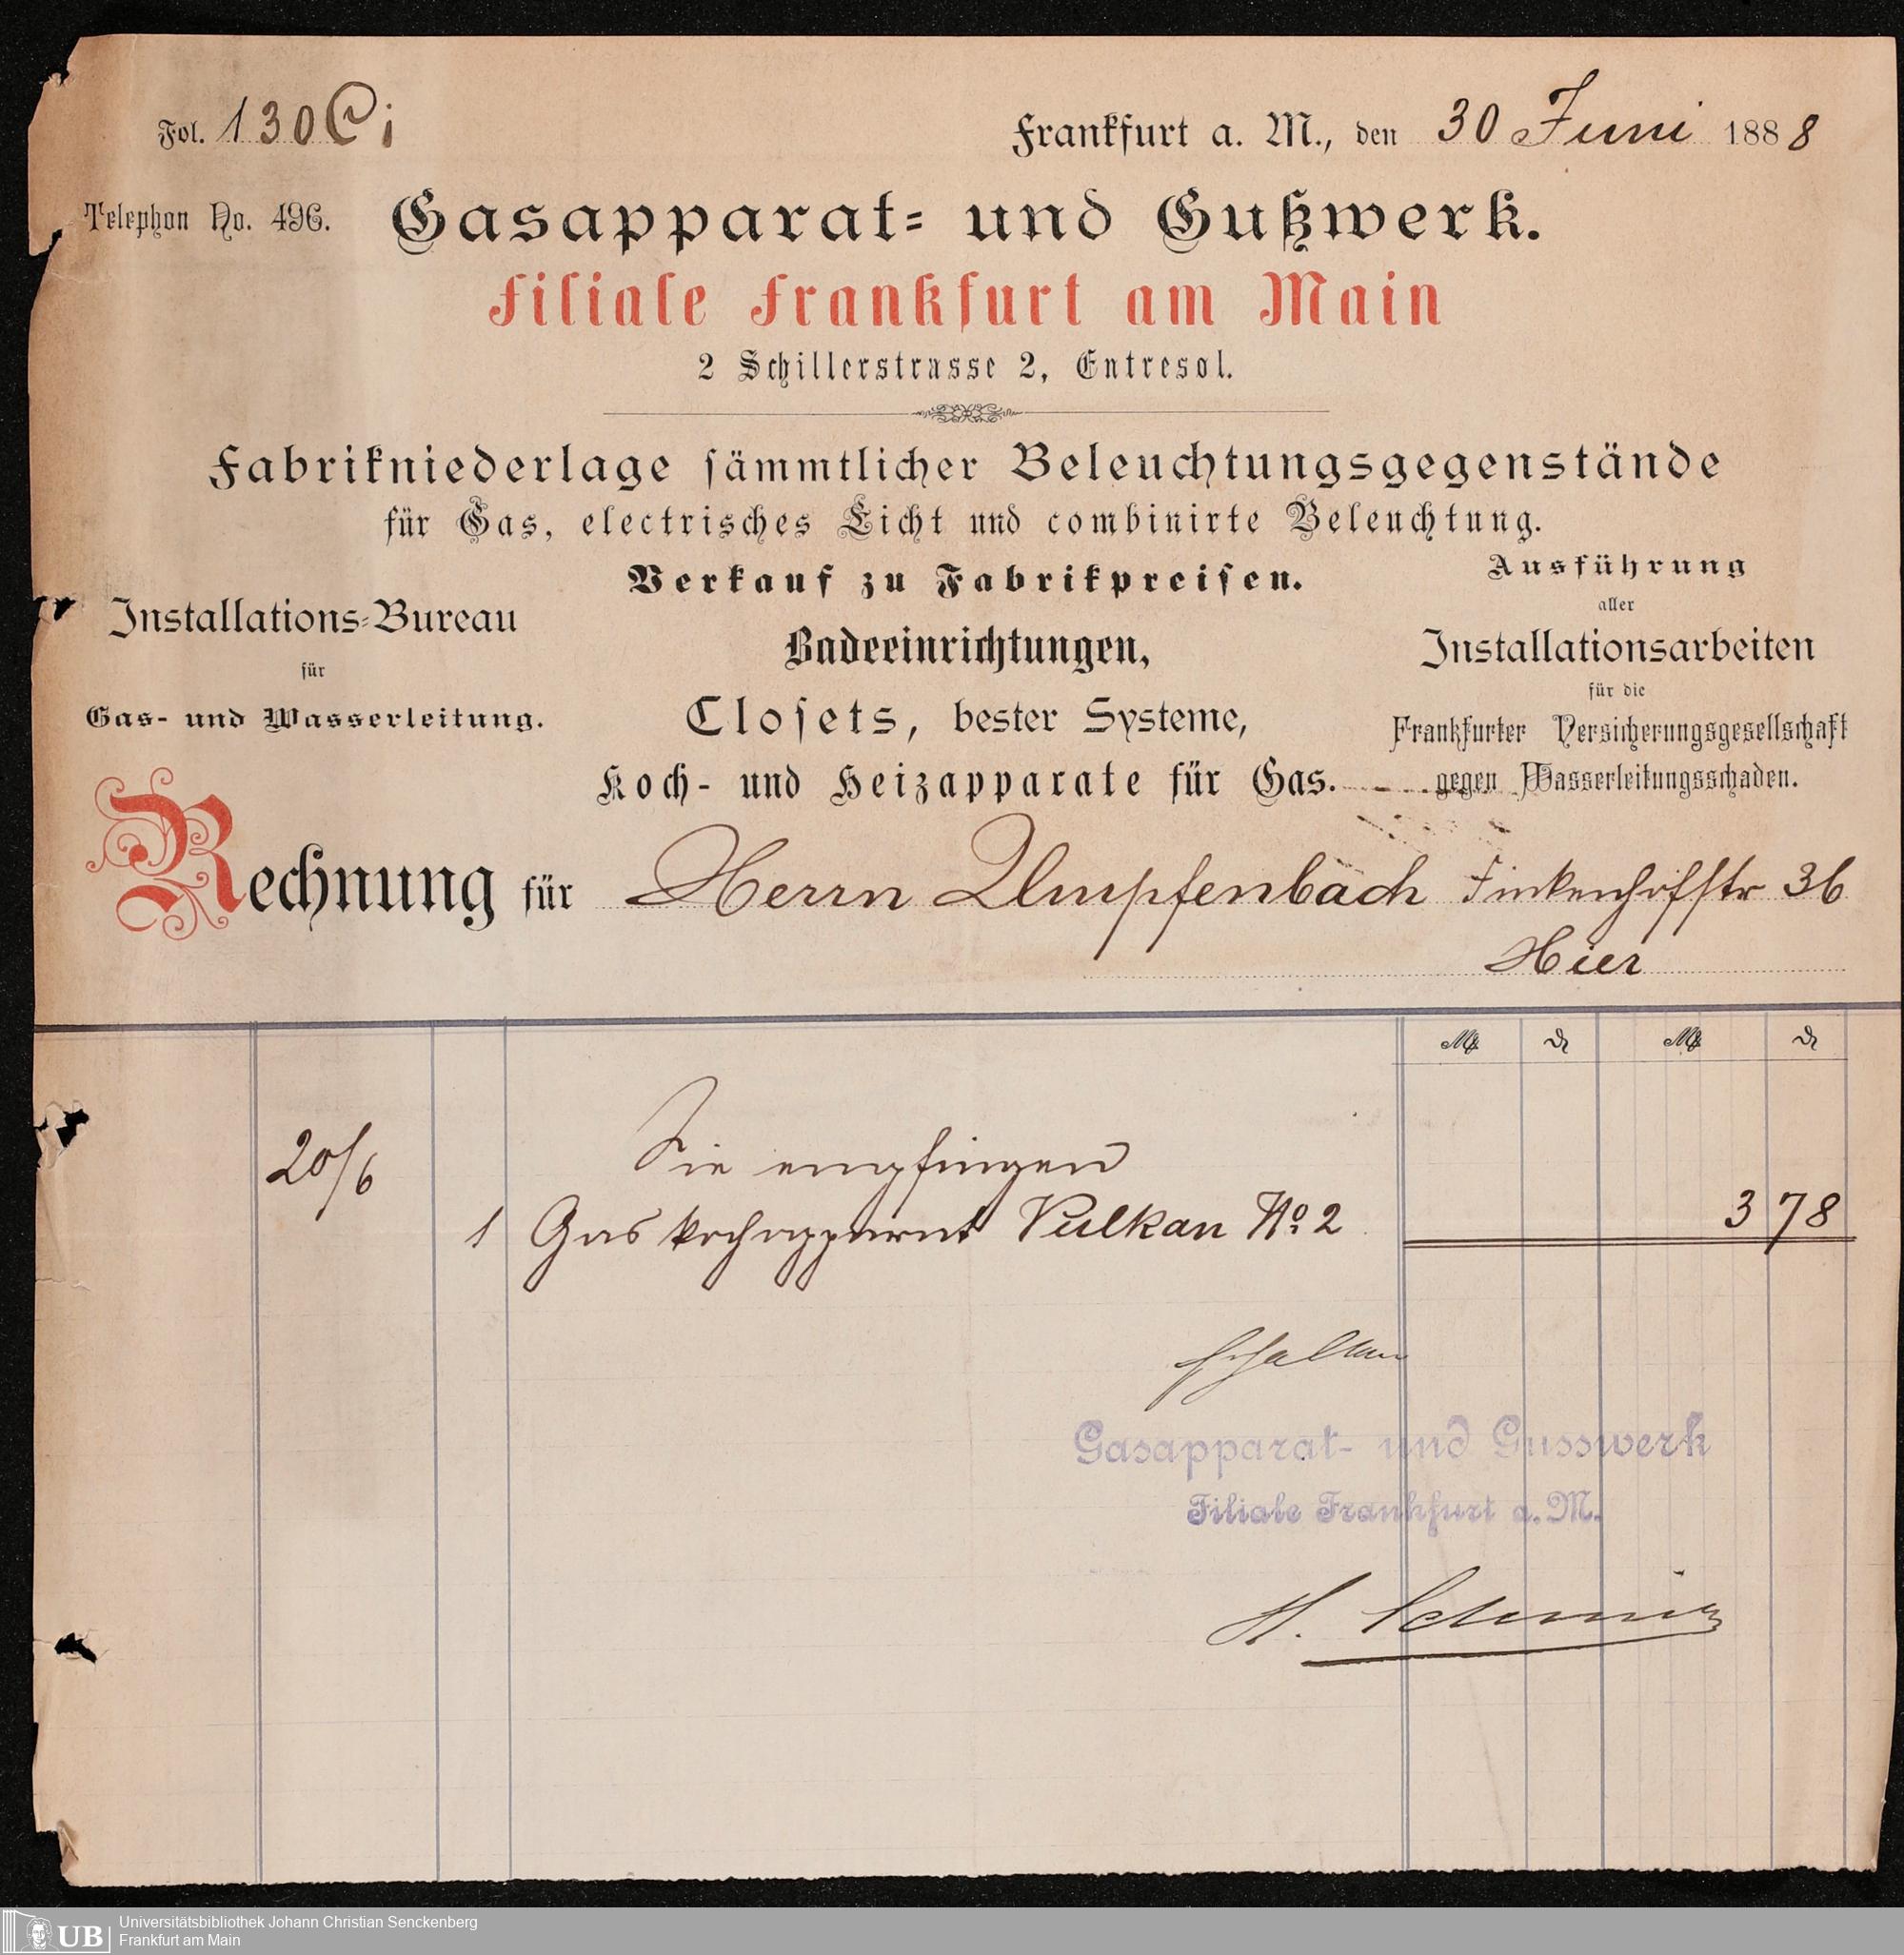 Fol. 130 Ci
Frankfurt a. M., den 30 Juni 1888
Telephon No. 496.
Gasapparat- und Gußwerk.
Filiale Frankfurt am Main
2 Schillerstrasse 2, Entresol.
Fabrikniederlage sämmtlicher Beleuchtungsgegenstände
für Gas, electrisches Licht und combinirte Beleuchtung.
Verkauf zu Fabrikpreisen.
Installations-Bureau
für
Gas- und Wasserleitung.
Badeeinrichtungen,
Closets, bester Systeme,
Koch- und Heizapparate für Gas.
Ausführung
aller
Installationsarbeiten
für die
Frankfurter Versicherungsgesellschaft
gegen Wasserleitungsschaden.
Rechnung für Herrn Umpfenbach Finkenhofstr 36
Hier
M ₰ M ₰
20/6 Sie empfingen
1 Gaskochapparat Vulkan No 2 3 78
Erhalten
Gasapparat- und Gusswerk
Filiale Frankfurt a. M.
H.
UB
Universitätsbibliothek Johann Christian Senckenberg
Frankfurt am Main